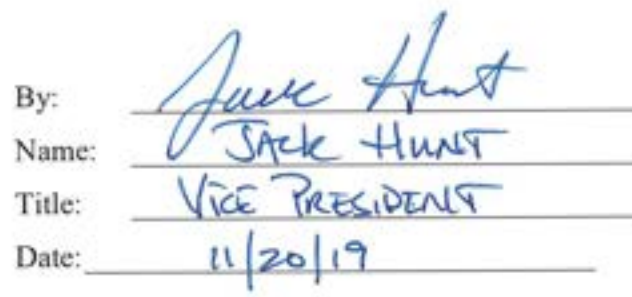 By: Jack Hunt
Name: JACK HUNT
Title: VICE PRESIDENT
Date: 11/20/19